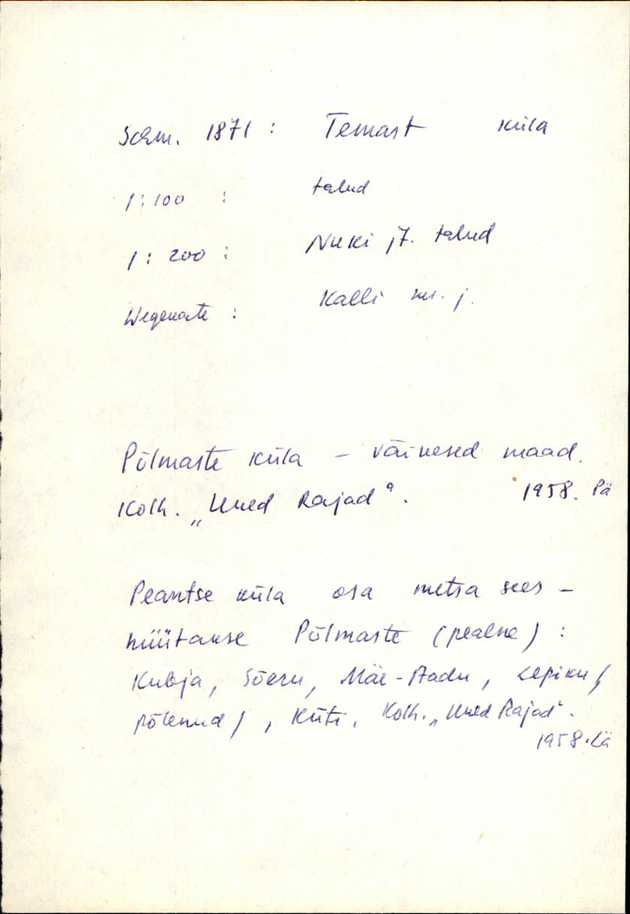 Schm. 1871 : Temast küla
1:100 : talud
1:200 : Nuki jt. talud
Wegenoote : Kalli mr. j.
Põlmaste küla – väikesed maad.
Kolh. „Uued Rajad". 1958. Pä
Peantse küla osa metsa sees –
hüütakse Põlmaste (pealne) :
Kubja, Sõeru, Mäe-Aadu, Lepiku /
põlenud/, Küti, Kolh. „Uued Rajad".
1958. Lä